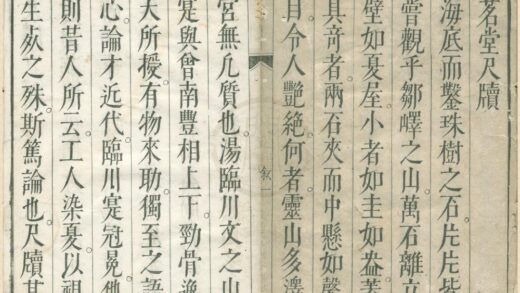 茗堂尺牘
海底而鑿珠樹之石片片皆
嘗觀乎鄒嶧之山萬石離立
壁如夏屋。小者如圭如盎蓋
具竒者。兩石夾而中懸如磬
月令人艷絕。何者靈山多澤
敘一
宮無凡質也。湯臨川文之山
寔與曾南豐相上下。勁骨
大所授。有物來助。獨至之語
心論才近代。臨川寔冠冕他
則昔人所云工人染夏以視
生死之殊。斯篤論也。尺牘其